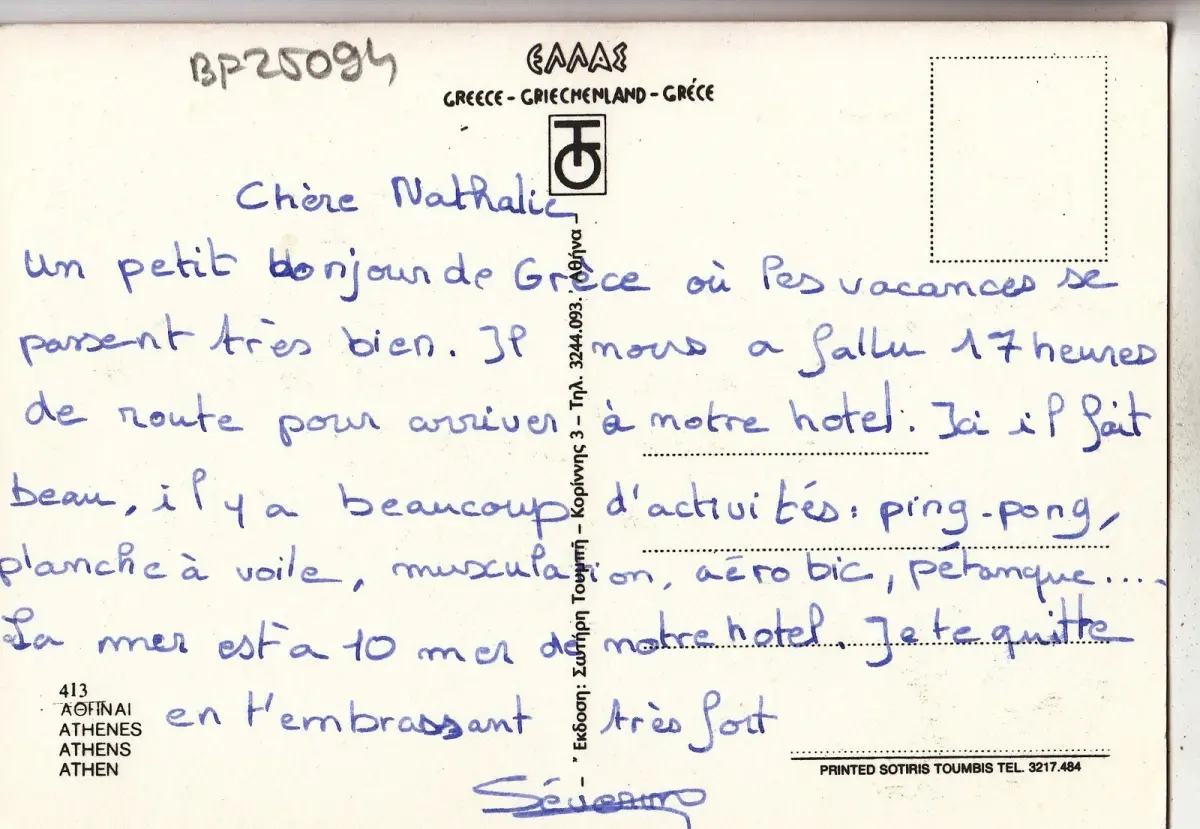 BP25094
ΕΛΛΑΣ
GREECE - GRIECHENLAND - GRÉCE
Chère Nathalie
Un petit bonjour de Grèce où les vacances se
passent très bien. Il nous a fallu 17 heures
de route pour arriver à notre hotel. Ici il fait
beau, il y a beaucoup d'activités: ping-pong,
planche à voile, musculation, aérobic, pétanque....
La mer est à 10 mer de notre hotel. Je te quitte
en t'embrassant très fort
Séverine
Εκδοση: Σωτήρη Τουμπή – Κορίννης 3 – Τηλ. 3244.093. Αθήνα –
413
ΑΘΗΝΑΙ
ATHENES
ATHENS
ATHEN
PRINTED SOTIRIS TOUMBIS TEL. 3217.484